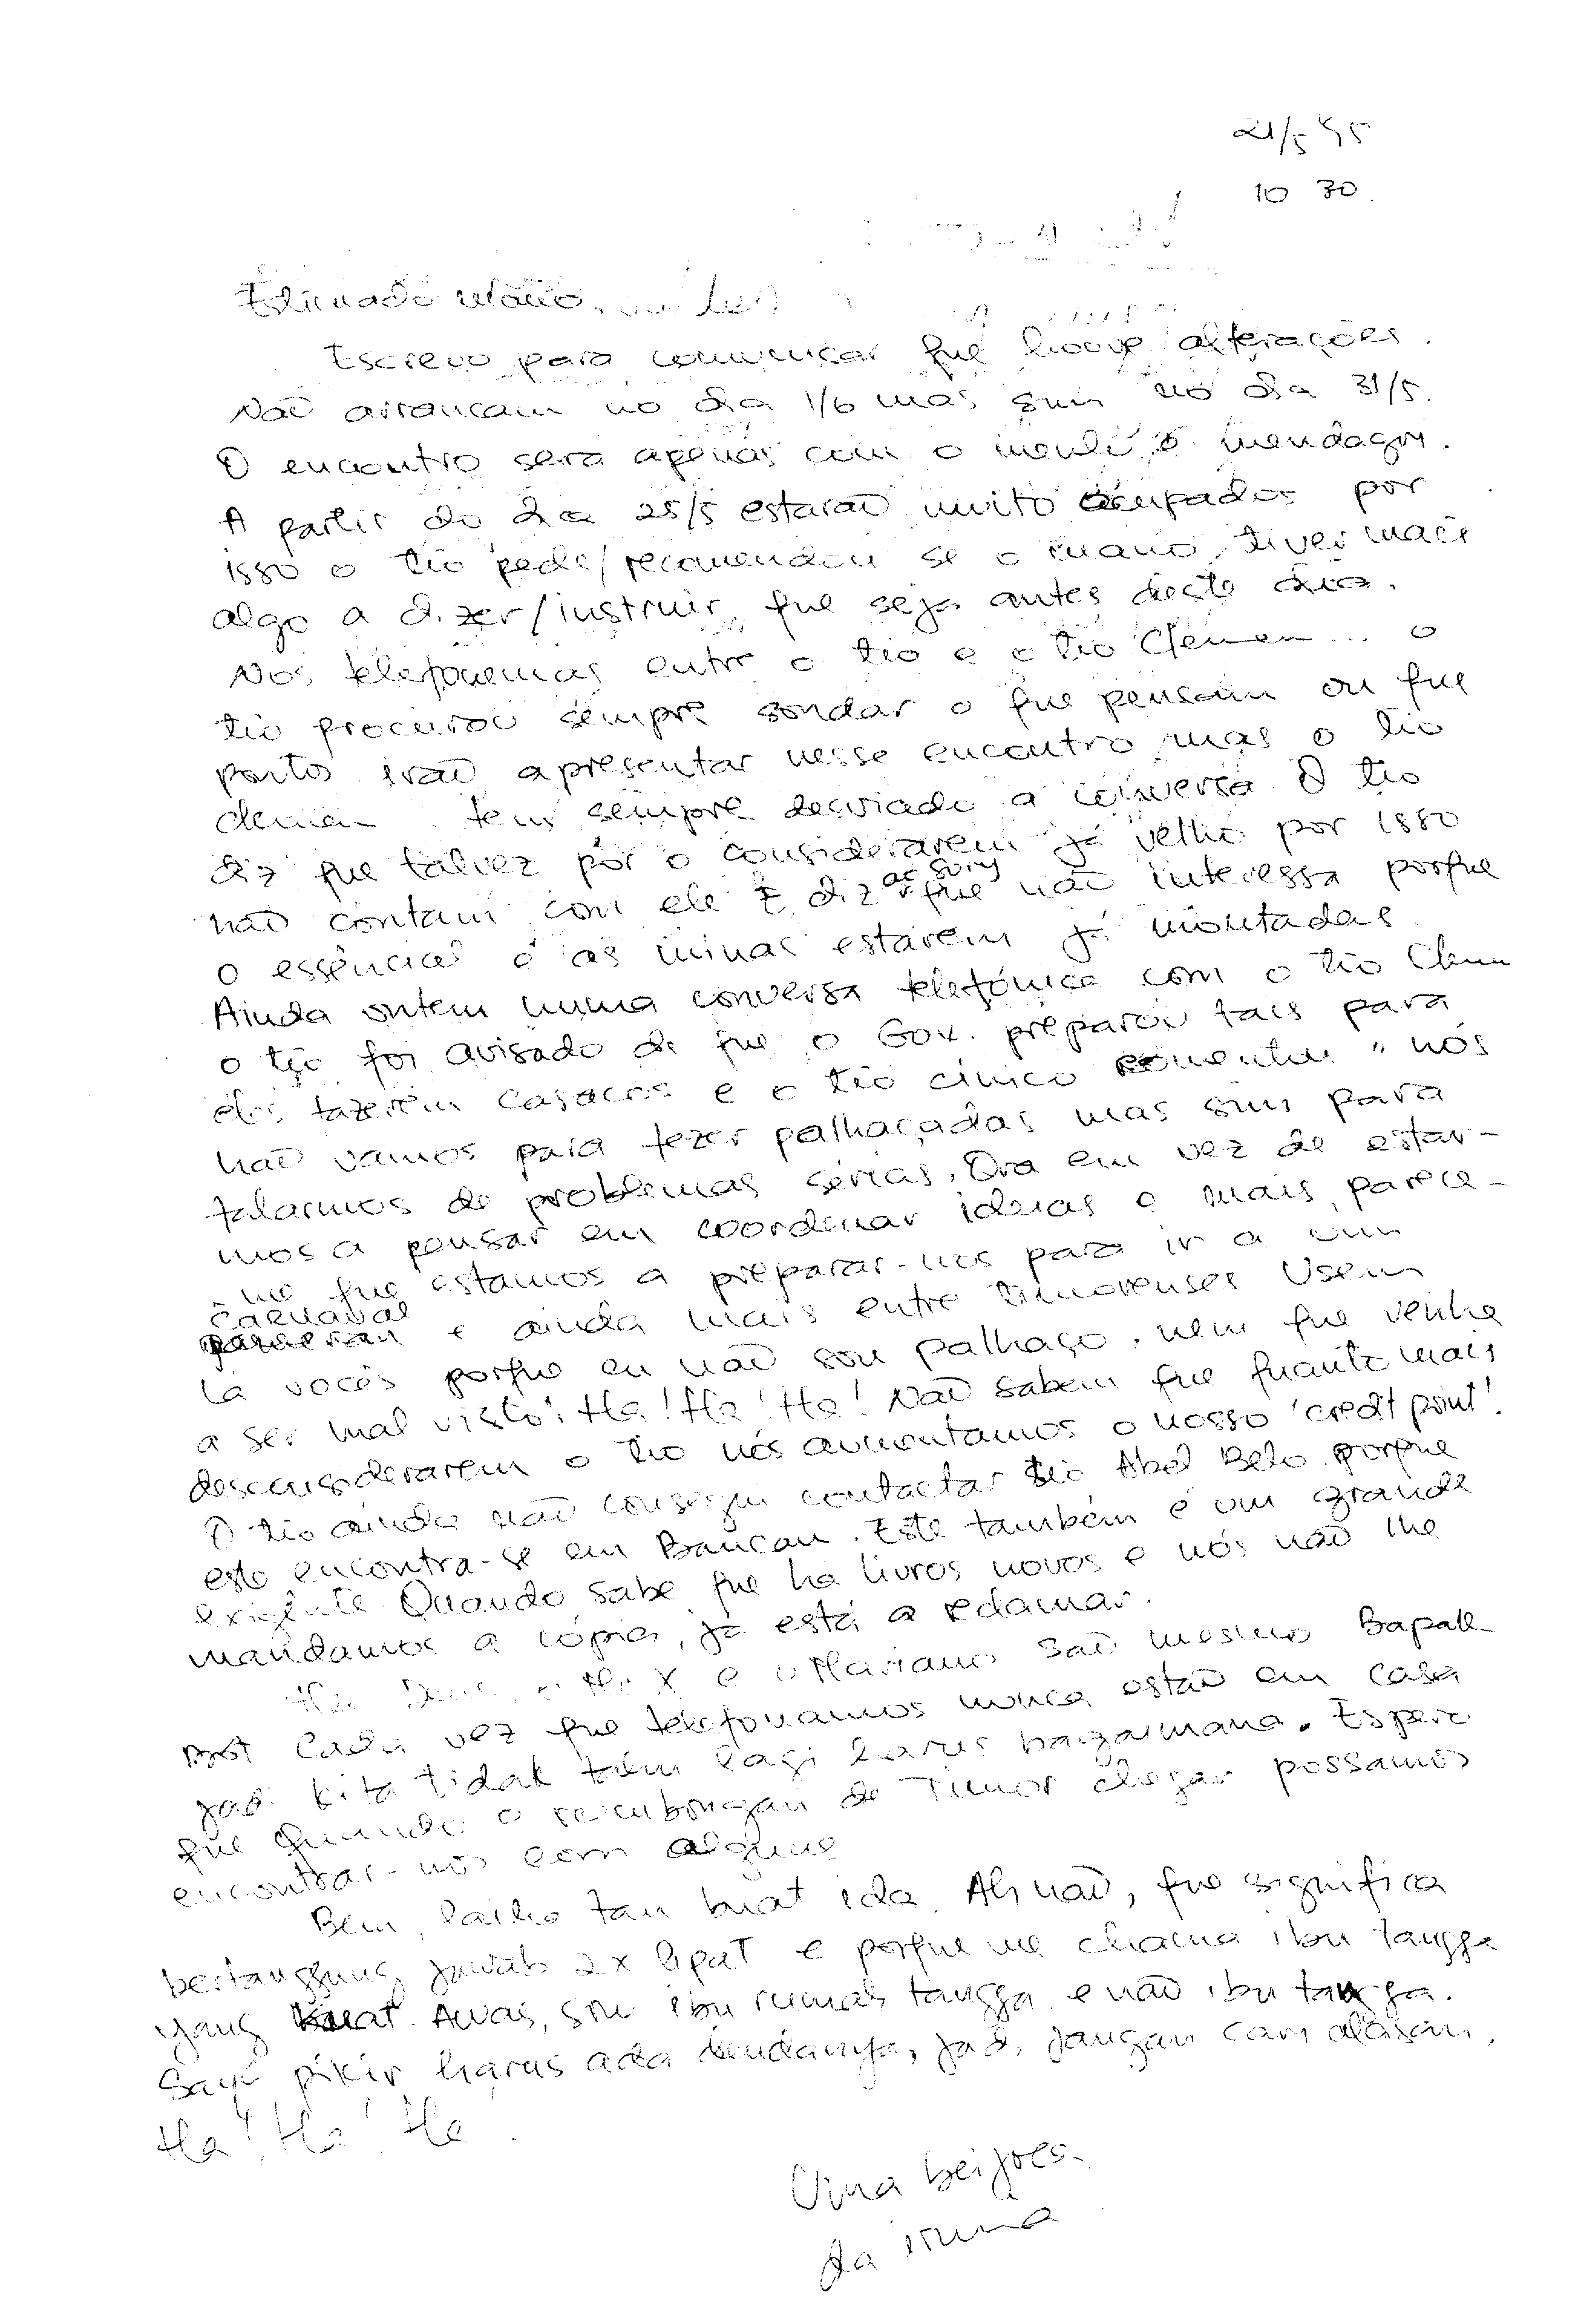 21/5 95
10 30
Estimado mano,
Escrevo para comunicar que houve alterações.
Não arrancam no dia 1/6 mas sim no dia 31/5.
O encontro será apenas com o menlu, o mendagri.
A partir do dia 25/5 estarão muito ocupados por
isso o tio pede/recomendou se o mano tiver mais
algo a dizer/instruir, que seja antes deste dia.
Nos telefonemas entre o tio e o tio Clemen... o
tio procurou sempre sondar o que pensam ou que
pontos irão apresentar nesse encontro mas o tio
Clemen tem sempre desviado a conversa. O tio
diz que talvez por o considerarem já velho por isso
não contam com ele E diz que não interessa porque
o essencial é as minas estarem já montadas
Ainda ontem numa conversa telefónica com o tio Clem
o tio foi avisado de que o Gov. preparou tais para
eles fazerem casacos e o tio cínico comentou "nós
não vamos para fazer palhaçadas mas sim para
falarmos de problemas sérias. Ora em vez de estar-
mos a pensar em coordenar ideias o mais parece-
-me que estamos a preparar-nos para ir a um
carnaval
e ainda mais entre timorenses Usem
lá vocês porque eu não sou palhaço, nem que venha
a ser mal visto! Ha! Ha! Ha! Não sabem que quanto mais
desconsiderarem o tio nós aumentamos o nosso 'credit point'!
O tio ainda não conseguiu contactar tio Abel Belo porque
este encontra-se em Baucau. Este também é um grande
exigente. Quando sabe que há livros novos e nós não lhe
mandamos a cópia, já está a reclamar.
X e o Mariano são mesmo Bapak
Cada vez que telefonamos nunca estão em casa
jadi kita tidak tahu lagi harus bagaimana. Espero
que quando o rombongan de Timor chegar possamos
encontrar-nos com alguns
Bem, tan buat ida. Ah não, que significa
bertanggung jawab 2x lipat e porque me chama ibu tangga
yang kuat. Awas, sou ibu rumah tangga e não ibu tangga.
Saya pikir harus ada bendanya, jadi, jangan cari alasan.
Ha! Ha! Ha
Uma beijoes
da irmã